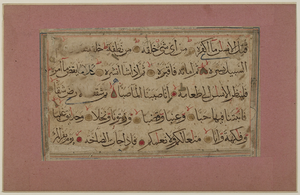 قتل الإنسان ما أكفره من أي شيء خلقه من نطفة خلقه
السبيل يسره ثم أماته فأقبره ثم إذا شاء أنشره كلا لما يقض ما أمره
فلينظر الإنسان إلى طعامه أنا صببنا الماء صبا ثم شققنا الأرض شقا
فأنبتنا فيها حبا وعنبا وقضبا وزيتونا ونخلا وحدائق غلبا
وفاكهة وأبا متاعا لكم ولأنعامكم فإذا جاءت الصاخة يوم يفر